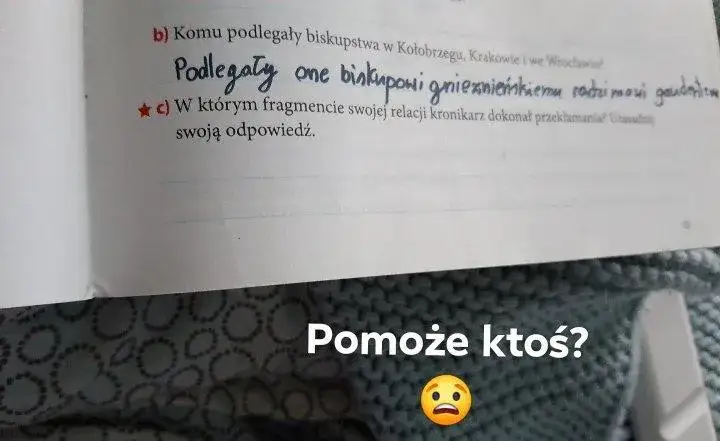 b) Komu podlegały biskupstwa w Kołobrzegu, Krakowie i we Wrocławiu?
Podlegały one biskupowi gnieźnieńskiemu radzimowi
★ c) W którym fragmencie swojej relacji kronikarz dokonał przekłamania? Uzasadnij
swoją odpowiedź.
Pomoże ktoś?
😧